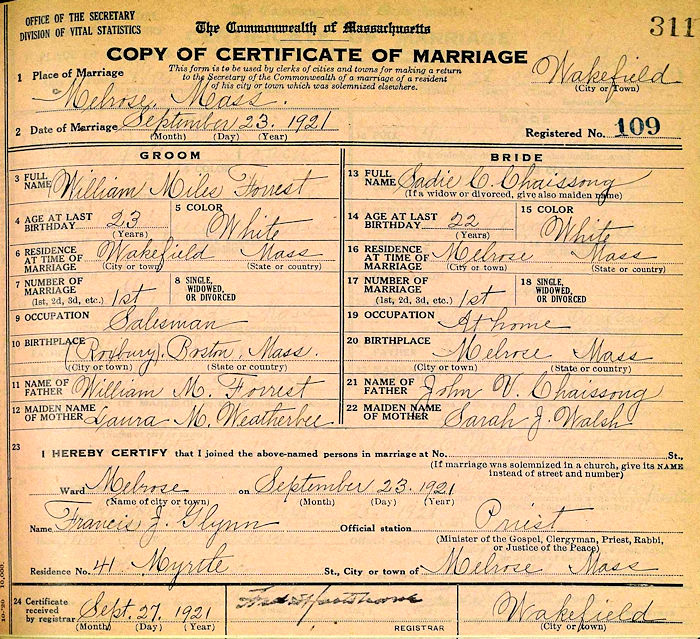 OFFICE OF THE SECRETARY
DIVISION OF VITAL STATISTICS
The Commonwealth of Massachusetts
311
COPY OF CERTIFICATE OF MARRIAGE
This form is to be used by clerks of cities and towns for making a return
to the Secretary of the Commonwealth of a marriage of a resident
of his city or town which was solemnized elsewhere.
Wakefield
(City or Town)
1 Place of Marriage
Melrose, Mass.
2 Date of Marriage September 23, 1921
(Month) (Day) (Year)
Registered No. 109
GROOM
3 FULL NAME William Miles Forrest
4 AGE AT LAST BIRTHDAY 23 (Years)
5 COLOR White
6 RESIDENCE AT TIME OF MARRIAGE Wakefield Mass
(City or town) (State or country)
7 NUMBER OF MARRIAGE (1st, 2d, 3d, etc.) 1st
8 SINGLE, WIDOWED, OR DIVORCED
9 OCCUPATION Salesman
10 BIRTHPLACE (Roxbury). Boston, Mass.
(City or town) (State or country)
11 NAME OF FATHER William M. Forrest
12 MAIDEN NAME OF MOTHER Laura M. Weatherbee
BRIDE
13 FULL NAME Sadie C. Chaissong
(If a widow or divorced, give also maiden name)
14 AGE AT LAST BIRTHDAY 22 (Years)
15 COLOR White
16 RESIDENCE AT TIME OF MARRIAGE Melrose Mass
(City or town) (State or country)
17 NUMBER OF MARRIAGE (1st, 2d, 3d, etc.) 1st
18 SINGLE, WIDOWED, OR DIVORCED
19 OCCUPATION At home
20 BIRTHPLACE Melrose Mass
(City or town) (State or country)
21 NAME OF FATHER John V. Chaissong
22 MAIDEN NAME OF MOTHER Sarah J. Walsh
23 I HEREBY CERTIFY that I joined the above-named persons in marriage at No. St.,
(If marriage was solemnized in a church, give its NAME
instead of street and number)
Ward Melrose on September 23, 1921
(Name of city or town) (Month) (Day) (Year)
Name Francis J. Glynn Official station Priest
(Minister of the Gospel, Clergyman, Priest, Rabbi,
or Justice of the Peace)
Residence No. 41 Myrtle St., City or town of Melrose Mass
24 Certificate received by registrar Sept. 27, 1921
(Month) (Day) (Year)
REGISTRAR
Wakefield
(City or town)